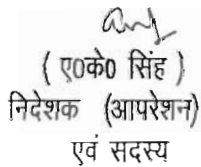 ( ए0के0 सिंह )
निदेशक (आपरेशन)
एवं सदस्य